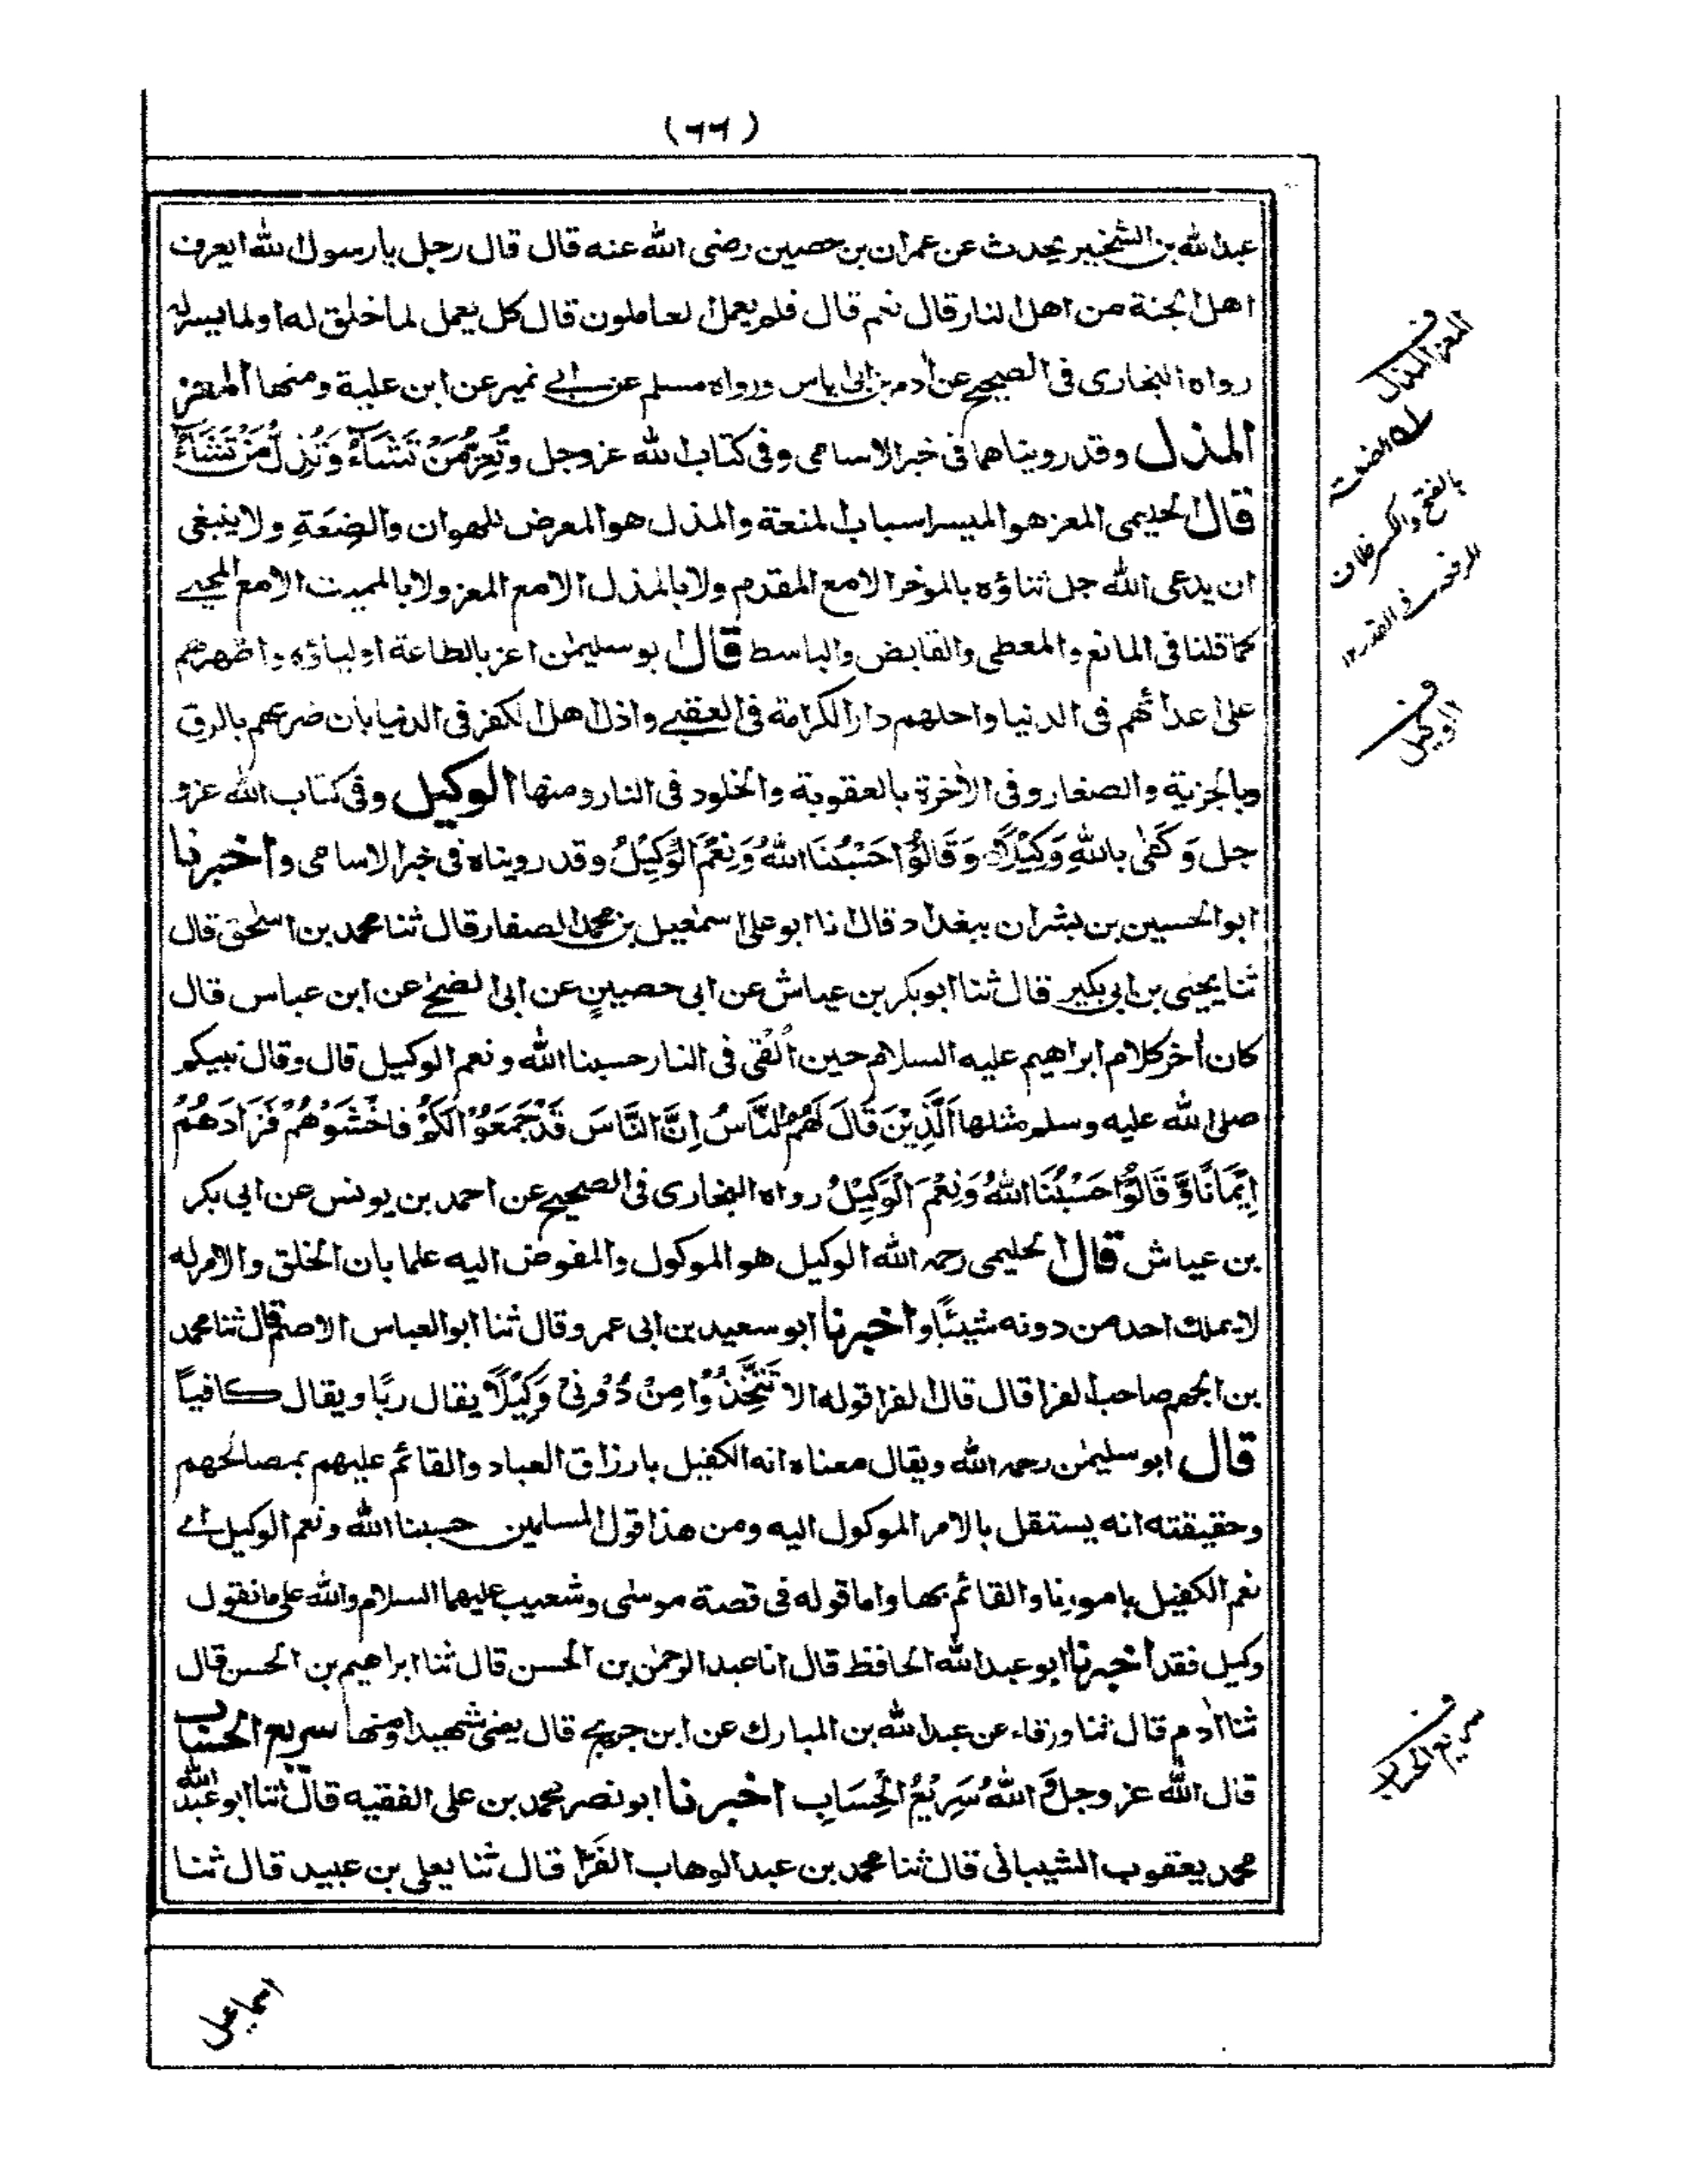 (٦٦)
عبدالله بن الشخير يحدث عن عمران بن حصين رضى الله عنه قال قال رجل يارسول الله ايعرف
اهل الجنة من اهل النار قال نعم قال فلم يعمل العاملون قال كل يعمل لما خلق له او لما ييسر له
رواه البخارى فى الصحيح عن ادم بن ابى اياس ورواه مسلم عن ابى نمير عن ابن علية ومنها المعز
المذل وقد رويناهما فى خبر الاسامى وفى كتاب الله عزوجل وَتُعِزُّ مَنْ تَشَآءُ وَتُذِلُّ مَنْ تَشَآءُ
قال الحليمى المعز هو الميسر اسباب المنعة والمذل هو المعرض للهوان والضِعَةِ ولا ينبغى
ان يدعى الله جل ثناؤه بالموخر الا مع المقدم ولا بالمذل الا مع المعز ولا بالمميت الا مع المحيى
كما قلنا فى المانع والمعطى والقابض والباسط قال ابو سليمٰن اعز بالطاعة اولياؤه واظهرهم
على اعدائهم فى الدنيا واحلهم دار الكرامة فى العقبى واذل اهل الكفر فى الدنيا بان ضربهم بالرق
وبالجزية والصغار وفى الاٰخرة بالعقوبة والخلود فى النار ومنها الوكيل وفى كتاب الله عزو
جل وَكَفٰى بِاللهِ وَكِيْلًا وَقَالُوْا حَسْبُنَا اللهُ وَنِعْمَ الْوَكِيْلُ وقد رويناه فى خبر الاسامى واخبرنا
ابو الحسين بن بشران ببغداد قال انا ابو على اسمٰعيل بن محمد الصفار قال ثنا محمد بن اسحٰق قال
ثنا يحيى بن ابى بكير قال ثنا ابو بكر بن عياش عن ابى حصينٍ عن ابى الضحٰى عن ابن عباس قال
كان اٰخر كلام ابراهيم عليه السلام حين اُلقى فى النار حسبنا الله ونعم الوكيل قال وقال نبيكم
صلى الله عليه وسلم مثلها اَلَّذِيْنَ قَالَ لَهُمُ النَّاسُ اِنَّ النَّاسَ قَدْ جَمَعُوْا لَكُمْ فَاخْشَوْهُمْ فَزَادَهُمْ
اِيْمَانًا وَّقَالُوْا حَسْبُنَا اللهُ وَنِعْمَ الْوَكِيْلُ رواه البخارى فى الصحيح عن احمد بن يونس عن ابى بكر
بن عياش قال الحليمى رحمه الله الوكيل هو الموكول والمفوض اليه علما بان الخلق والامر له
لا يملك احد من دونه شيئًا واخبرنا ابو سعيد بن ابى عمرو قال ثنا ابو العباس الاصم قال ثنا محمد
بن الجهم صاحب الفرا قال قال الفرا قوله الا تَتَّخِذُوْا مِنْ دُوْنِىْ وَكِيْلًا يقال ربًا ويقال كافياً
قال ابو سليمٰن رحمه الله ويقال معناه انه الكفيل بارزاق العباد والقائم عليهم بمصالحهم
وحقيقته انه يستقل بالامر الموكول اليه ومن هذا قول المسلمين حسبنا الله ونعم الوكيل اى
نعم الكفيل بامورنا والقائم بها واما قوله فى قصة موسٰى وشعيب عليهما السلام والله على ما نقول
وكيل فقد اخبرنا ابو عبد الله الحافظ قال انا عبد الرحمٰن بن الحسن قال ثنا ابراهيم بن الحسن قال
ثنا اٰدم قال ثنا ورقاء عن عبد الله بن المبارك عن ابن جريج قال يعنى شهيدا ومنها سريع الحساب
قال الله عز وجل وَاللهُ سَرِيْعُ الْحِسَابِ اخبرنا ابو نصر محمد بن على الفقيه قال ثنا ابو عبد الله
محمد يعقوب الشيبانى قال ثنا محمد بن عبد الوهاب الفَرّا قال ثنا يعلى بن عبيد قال ثنا
المعز المذل
له الضعة
بالفتح والكسر خلاف
الرفعة فى القدر ١٢
الوكيل
سريع الحساب
اسماعيل